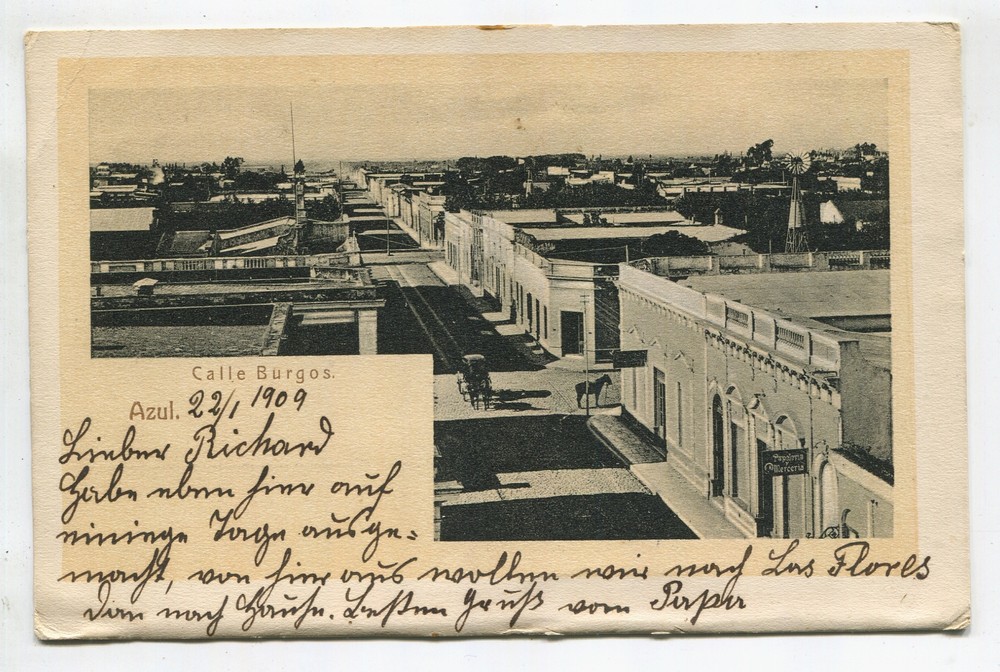 Calle Burgos.
Azul. 22/1 1909
Lieber Richard
Habe eben hier auf
einige Tage ausge=
macht, von hier aus wollen wir nach Las Flores
dan nach Hause. Besten Gruß vom Papa
Papeleria
y
Merceria